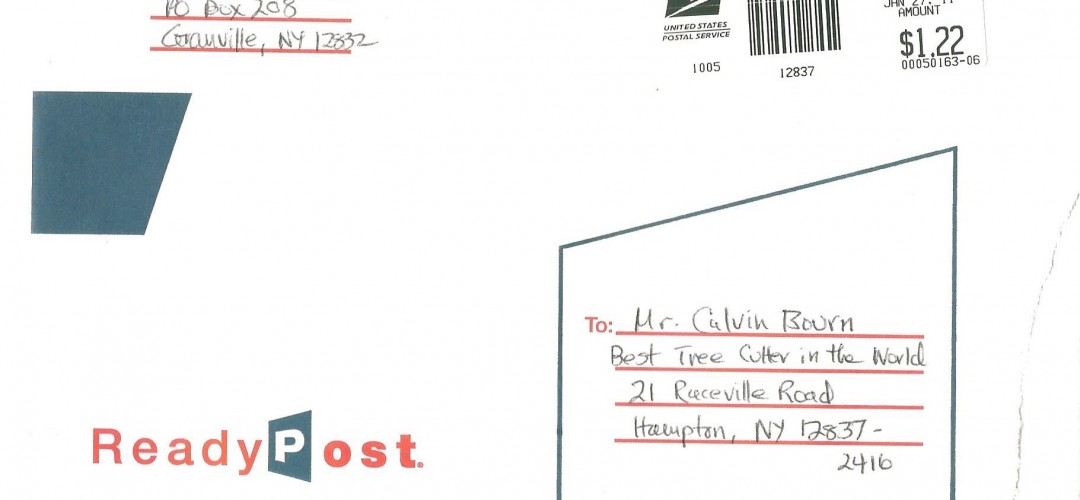 PO Box 208
Granville, NY 12832
UNITED STATES
POSTAL SERVICE
1005
12837
JAN 27, 11
AMOUNT
$1.22
00050163-06
To: Mr. Calvin Bourn
Best Tree Cutter in the World
21 Raceville Road
Hampton, NY 12837-
2416
ReadyPost.